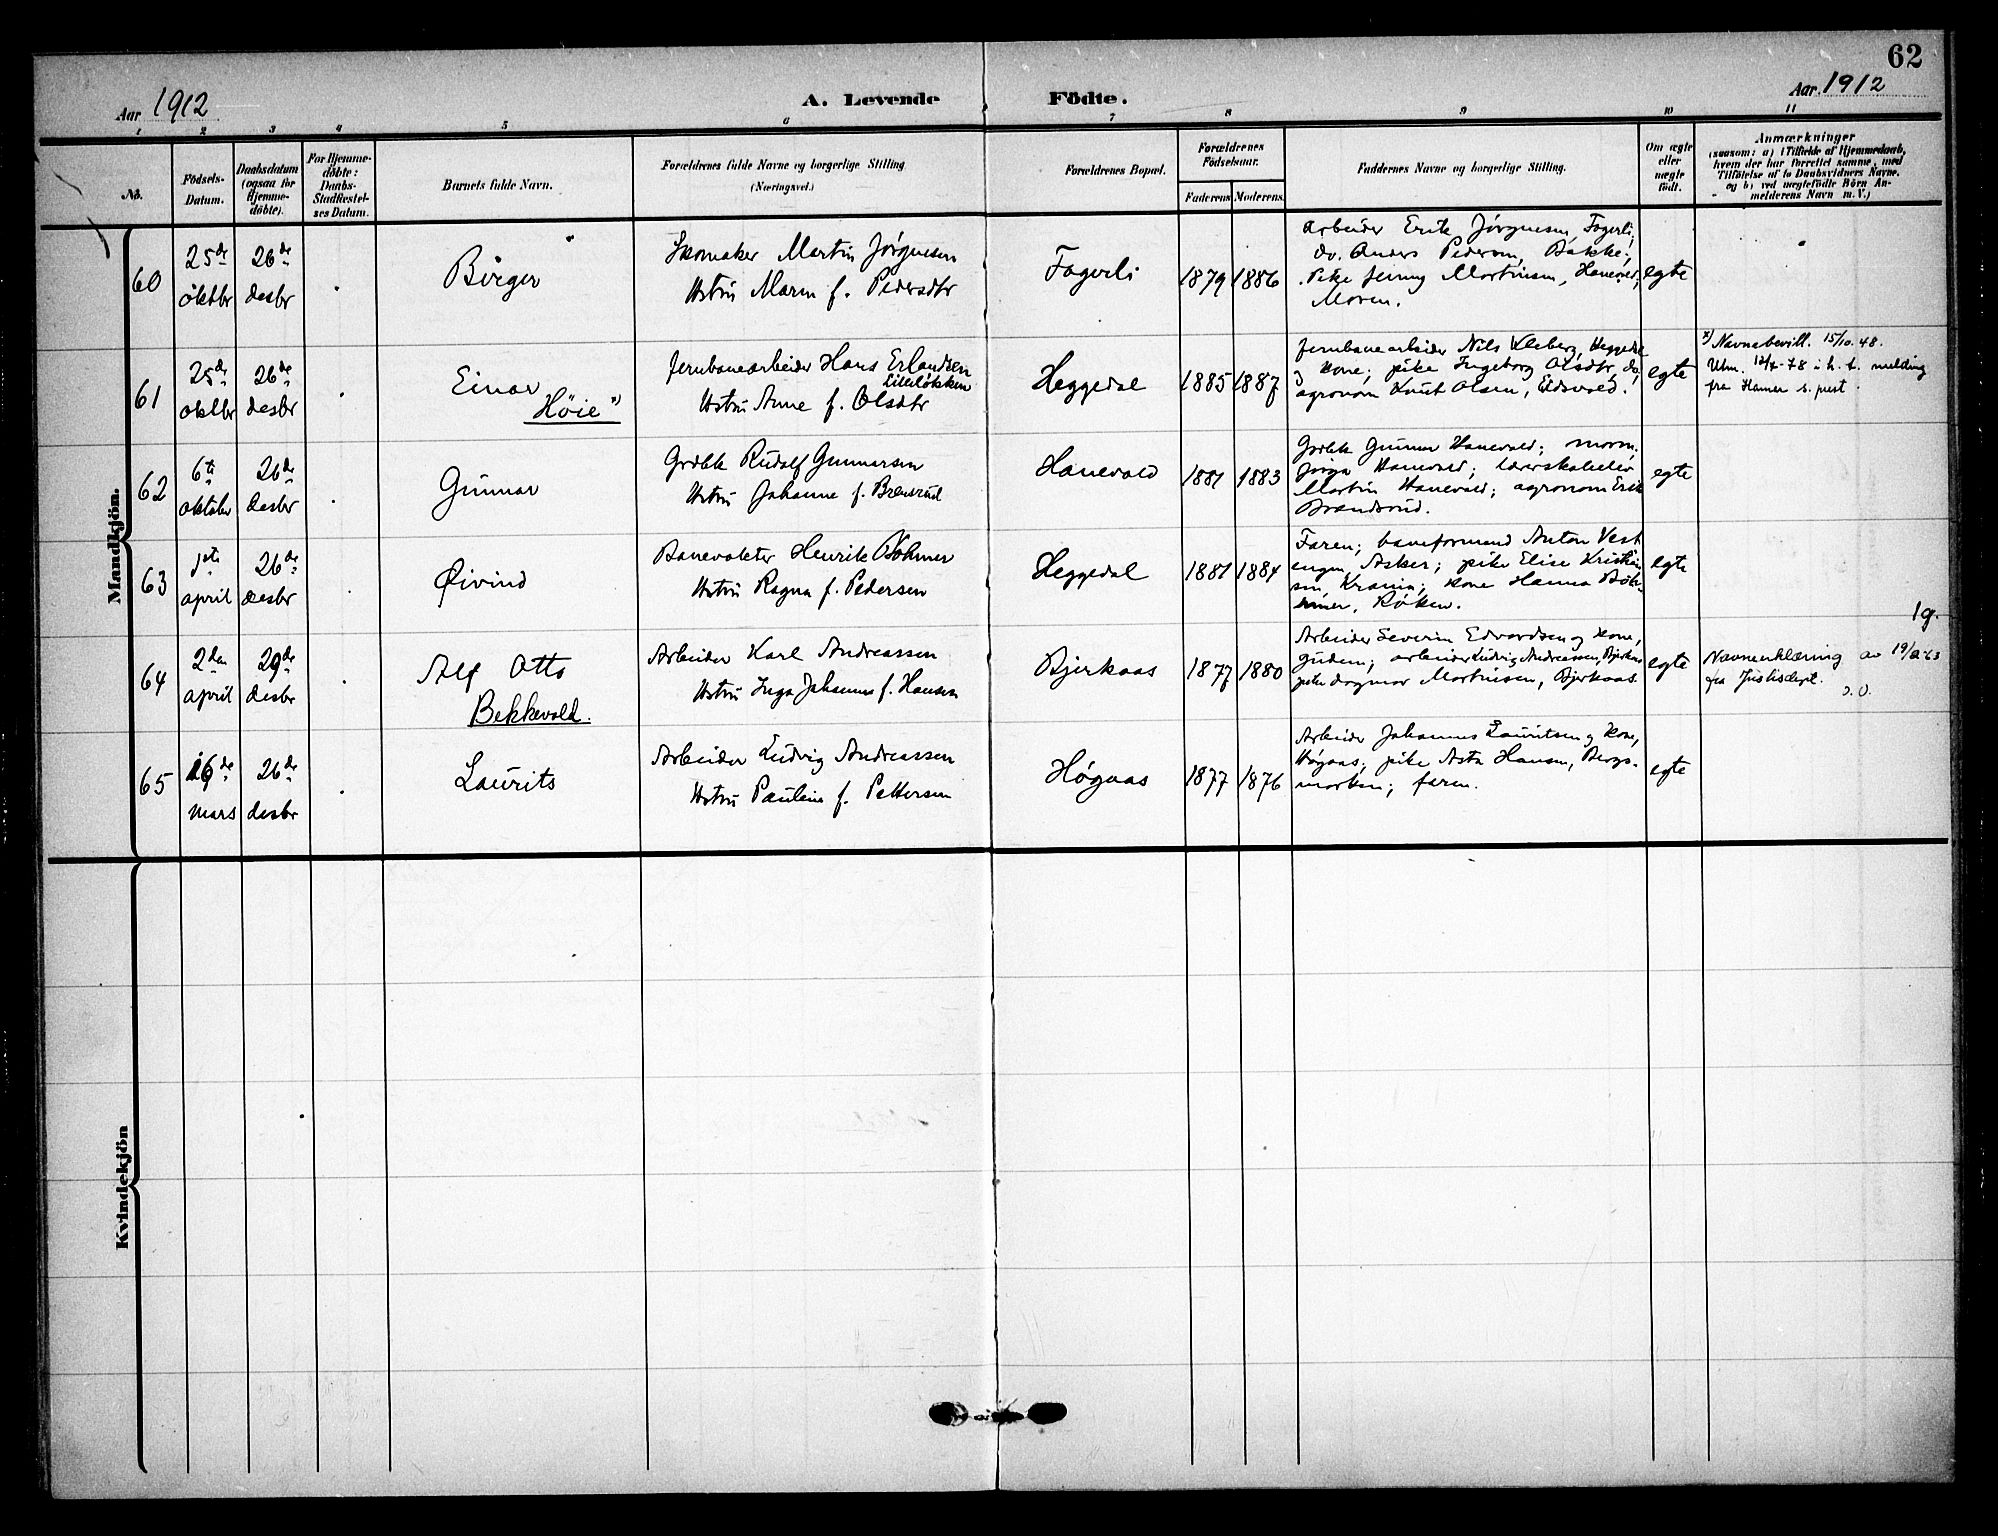 62
Aar 1912
A. Levende Födte.
Aar 1912
1 2 3 4 5 6 7 8 9 10 11
No.
Födsels-
Datum.
Daabsdatum
(ogsaa for
Hjemme-
döbte).
For Hjemme-
döbte:
Daabs-
Stadfæstel-
ses Datum.
Barnets fulde Navn.
Forældrenes fulde Navne og borgerlige Stilling
(Næringsvei.)
Forældrenes Bopæl.
Forældrenes
Födselsaar.
Faderens Moderens
Faddernes Navne og borgerlige Stilling.
Om ægte
eller
uægte
födt.
Anmærkninger
(saasom: a) i Tilfælde af Hjemmedaab,
hvem der har forrettet samme, med
Tilföielse af to Daabsvidners Navne,
og b) ved uægtefödte Börn An-
melderens Navn m. V.)
Mandkjön.
60
25de
oktbr
26de
desbr
Birger
Skomaker Martin Jørgensen
Hstru Maren f. Pedersdtr
Fagerli
1879 1886
Arbeider Erik Jørgensen, Fagerli;
do. Anders Pedersen, Bakke;
Pike Jenny Martinsen, Hanevold;
Moren.
egte
61
25de
oktbr
26de
desbr
Einar
Høie x)
Jernbanearbeider Hans Erlandsen
Lilleløkken
Hstru Anne f. Olsdtr
Heggedal
1885 1887
Jernbanearbeider Nils Kleberg, Heggedal
og kone; pike Ingeborg Olsdtr, do;
agronom Knut Olsen, Eidsvold.
egte
x) Navnebevill. 15/10.48.
Utm. 12/4-78 i h. t. melding
fra Hamar s. prest.
62
6te
oktober
26de
desbr
Gunnar
Grdbk Rudolf Gunnarsen
Hstru Johanne f. Brensrud
Hanevold
1881 1883
Grdbk Gunnar Hanevold; moren;
Hanevold; lærerskoleelev
Martin Hanevold; agronom Erik
Brendsrud.
egte
63
1ste
april
26de
desbr
Øivind
Banevokter Henrik Bøhmer
Hstru Ragna f. Pedersen
Heggedal
1881 1884
Faren; baneformand Anton Vest
engen, Asker; pike Elise Kristian
sen, Krania; kone Hanna Bøh-
mer, Røken.
egte
64
2den
april
29de
desbr
Alf Otto
Bekkevold.
Arbeider Karl Andreassen
Hstru Inga Johanne f. Hansen
Bjerkaas
1877 1880
Arbeider Severin Edvardsen og kone,
Guden; arbeider Ludvig Andreassen, Bjerkaas
pike Dagmar Martinsen, Bjerkaas.
egte
19.
Navneerklæring av 19/2-63
fra Justisdept.
65
16de
mars
26de
desbr
Laurits
Arbeider Ludvig Andreassen
Hstru Pauline f. Pettersen
Høgaas
1877 1876
Arbeider Johannes Lauritsen og kone,
Høgaas; pike Asta Hansen, Bergs-
marken; faren.
egte
Kvindekjön